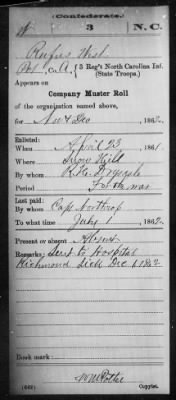 (Confederate.)
W 3 N.C.
Rufus West
Pvt, Co. A, 3 Reg't North Carolina Inf.
(State Troops.)
Appears on
Company Muster Roll
of the organization named above,
for Nov & Dec, 1862.
Enlisted:
When April 23, 1861.
Where Snow Hill
By whom
Period For the war
Last paid:
By whom Capt Northrop
To what time July 1, 1862.
Present or absent Absent
Remarks: Sent to Hospital
Richmond Sick Dec 1 1862
Book mark:
(642) Copyist.